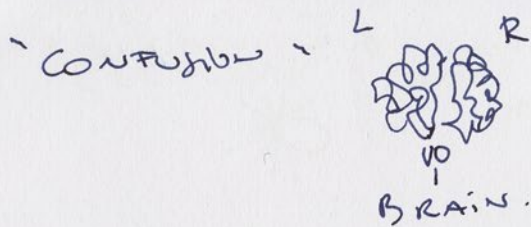 "CONFUSION"
L R
BRAIN.